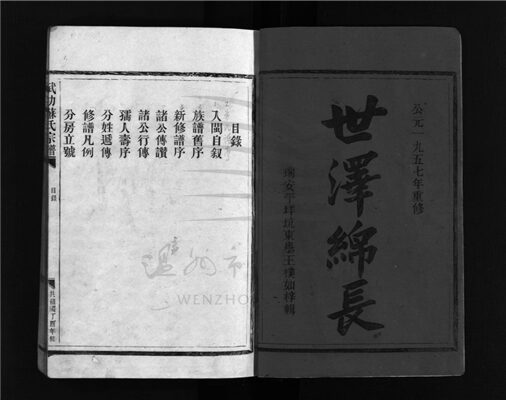 公元一九五七年重修
世澤綿長
瑞安平坑東巷王樸如梓輯
目錄
入閩自叙
族譜舊序
新修譜序
諸公傳讚
諸公行傳
孺人壽序
分姓遞傳
修譜凡例
分房立號
武功蘇氏宗譜
目錄
溫州市
WENZHO